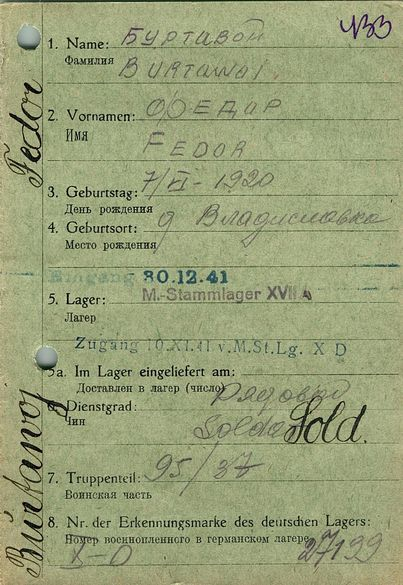 433
1. Name: БУРТАВОЙ
Фамилия BURTAWOI.
2. Vornamen: ФЕДАР
Имя FEDOR
3. Geburtstag: 7/XI-1920
День рождения
4. Geburtsort: д Владиславка
Место рождения
Eingang 30.12.41
5. Lager: M.-Stammlager XVII A
Лагерь
Zugang 10.XI.41 v. M.St.Lg. X D
5a. Im Lager eingeliefert am:
Доставлен в лагерь (число)
6. Dienstgrad: Рядовой
Чин Soldat Sold.
7. Truppenteil: 95/37
Воинская часть
8. Nr. der Erkennungsmarke des deutschen Lagers:
Номер военнопленного в германском лагере
X-D 27199
Burtawoj Fedor